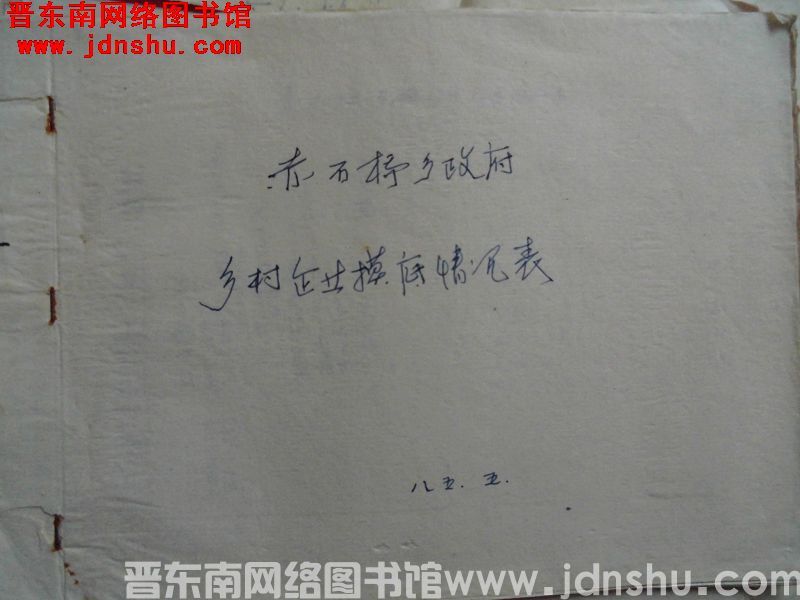 晋东南网络图书馆
www.jdnshu.com
赤石桥乡政府
乡村企业摸底情况表
八五.五.
晋东南网络图书馆www.jdnshu.com